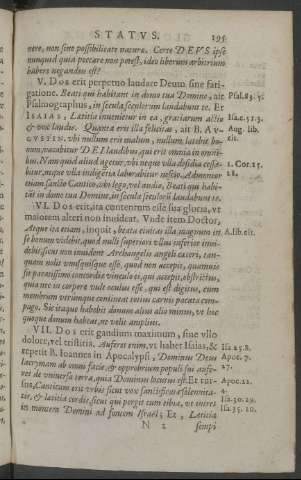 STATVS. 195
nere, non sine possibilitate naturæ. Certe DEVS ipse
nunquid quia peccare non potest, ideo liberum arbitrium
habere negandus est?
V. Dos erit perpetuo laudare Deum sine fati-
gatione. Beati qui habitant in domo tua Domine, ait
Psalmographus, in secula seculorum laudabunt te. Et
ISAIAS, Lætitia invenietur in ea, gratiarum actio
& vox laudis. Quanta erit illa felicitas, ait B. AV-
GVSTIN. vbi nullum erit malum, nullum latebit bo-
num, vacabitur DEI laudibus, qui erit omnia in omni-
bus. Nam quid aliud agetur, vbi neque vlla desidia cessa-
bitur, neque vlla indigentia laborabitur nescio. Admoneor
etiam sancto Cantico, vbi lego, vel audio, Beati qui habi-
tāt in domo tua Domine, in secula seculorū laudabunt te.
VI. Dos erit, ita contentum esse sua gloria, vt
maiorem alteri non invideat. Vnde item Doctor,
Atque ita etiam, inquit, beata civitas illa magnum in
se bonum videbit, quod nulli superiori vllus inferior invi-
debit, sicut non invident Archangelis angeli cæteri, tan-
quam nolit vnusquisque esse, quod non accepit, quamvis
sit pacatissimo concordiæ vinculo ei, qui accepit, obstrictus,
quia nec in corpore vult oculus esse, qui est digitus, cum
membrum utrumque contineat totius carnis pacata com-
pago. Sic itaque habebit donum alius alio minus, vt hoc
quoque donum habeat, ne velit amplius.
VII. Dos erit gaudium maximum, sine vllo
dolore, vel tristitia. Auferet enim, vt habet Isaias, &
repetit B. Ioannes in Apocalypsi, Dominus Deus
lacrymam ab omni facie, & opprobrium populi sui aufe-
ret de vniversa terra, quia Dominus locutus est. Et rur-
sus, Canticum erit vobis sicut vox sanctificatæ solennita-
tis, & lætitia cordis, sicut qui pergit cum tibia, vt intret
in montem Domini ad fortem Israël; Et, Lætitia
N 2 sempi-
Psal. 83. 5.
Isa. 51. 3.
Aug. lib.
cit.
1. Cor. 15.
28.
A. lib. cit.
Isa 25. 8.
Apoc. 7.
17.
Apoc. 21.
4.
Isa 30. 29.
Isa 35. 10.